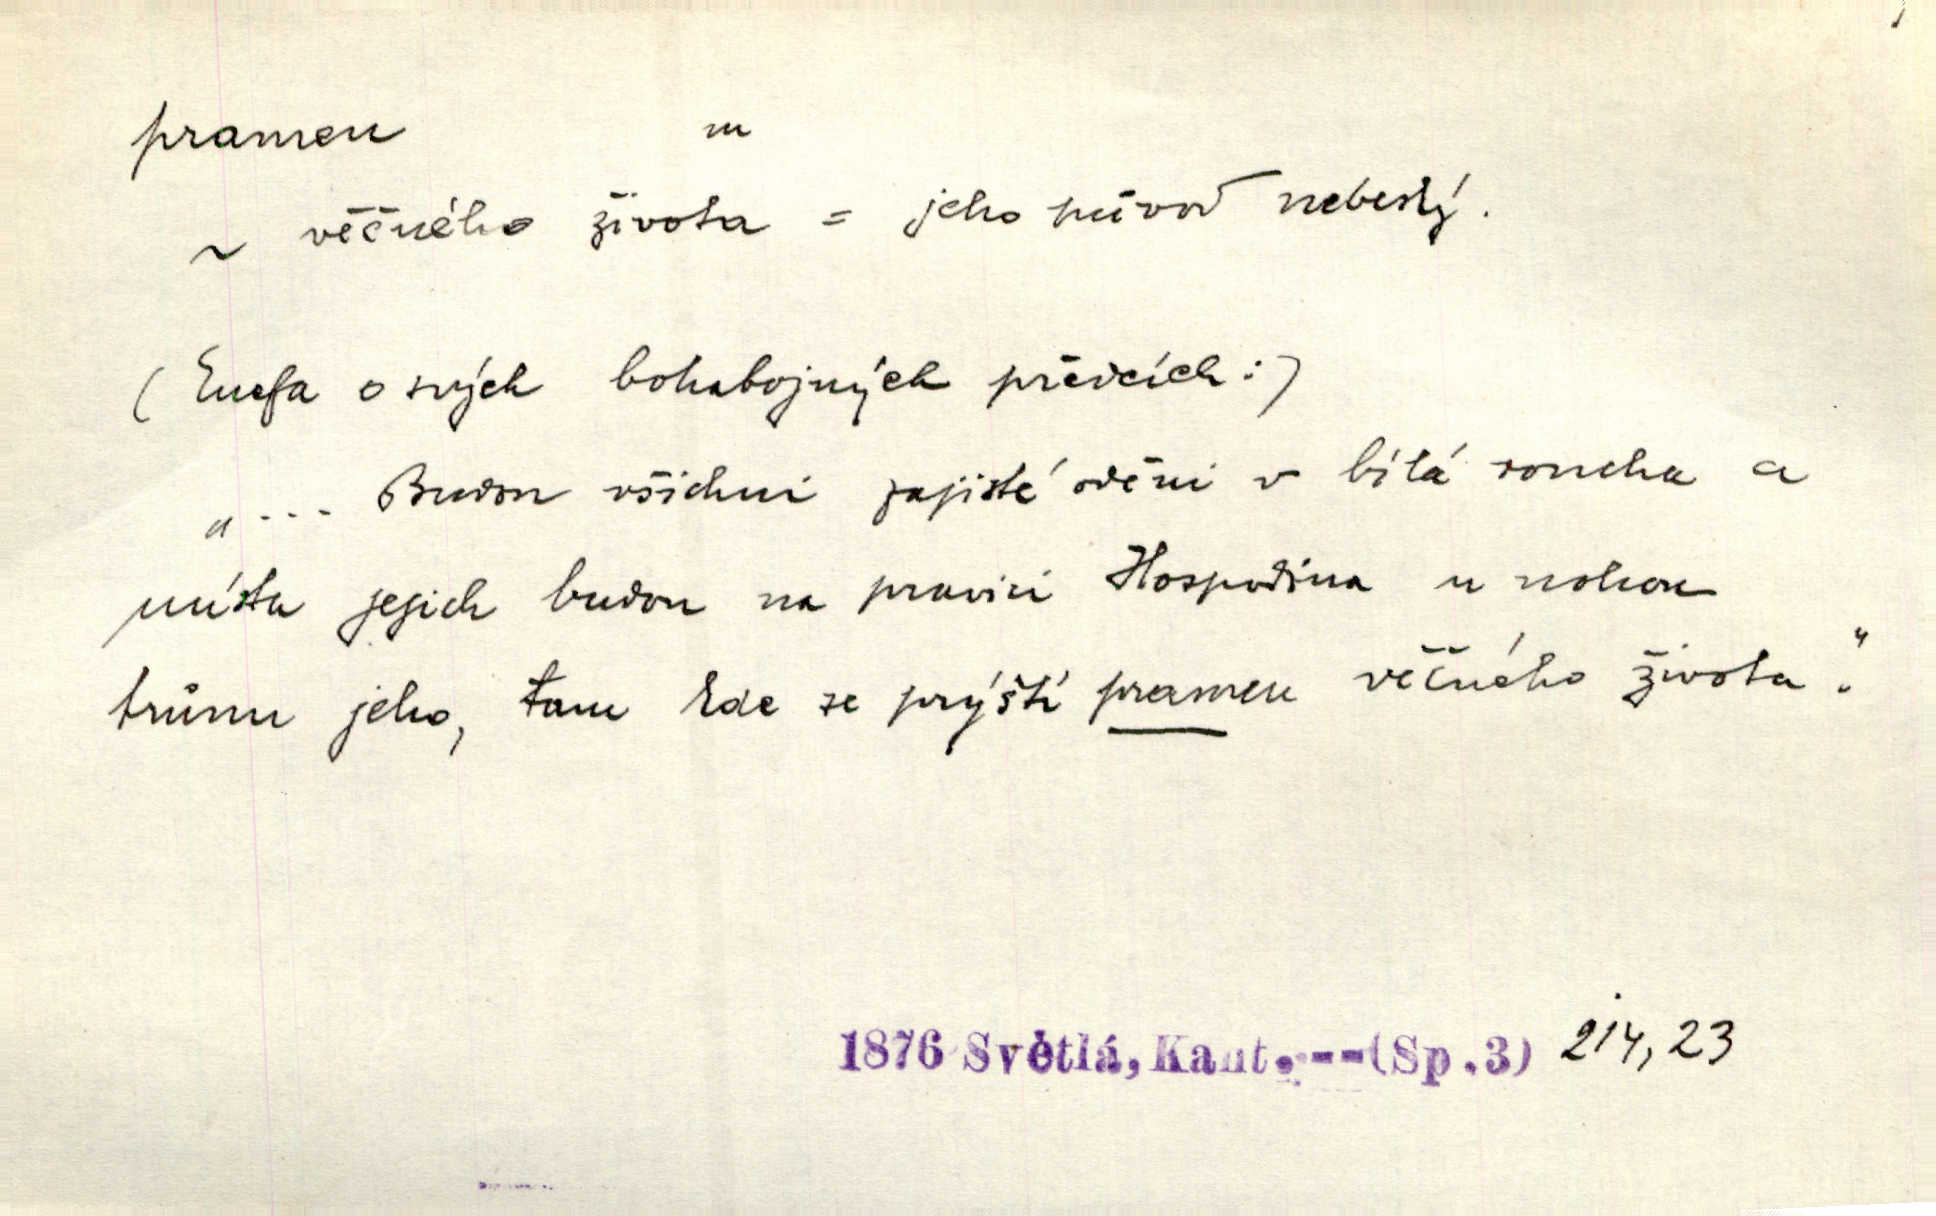 pramen m
~ věčného života = jeho původ nebeský.
(Enefa o svých bohabojných předcích:)
„... Budou všichni zajisté oděni v bílá roucha a
místa jejich budou na pravici Hospodina u nohou
trůnu jeho, tam kde se prýští pramen věčného života."
1876 Světlá, Kant.--(Sp.3) 214, 23